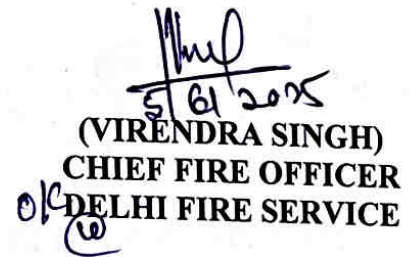 5/6/2025
(VIRENDRA SINGH)
CHIEF FIRE OFFICER
O/C DELHI FIRE SERVICE